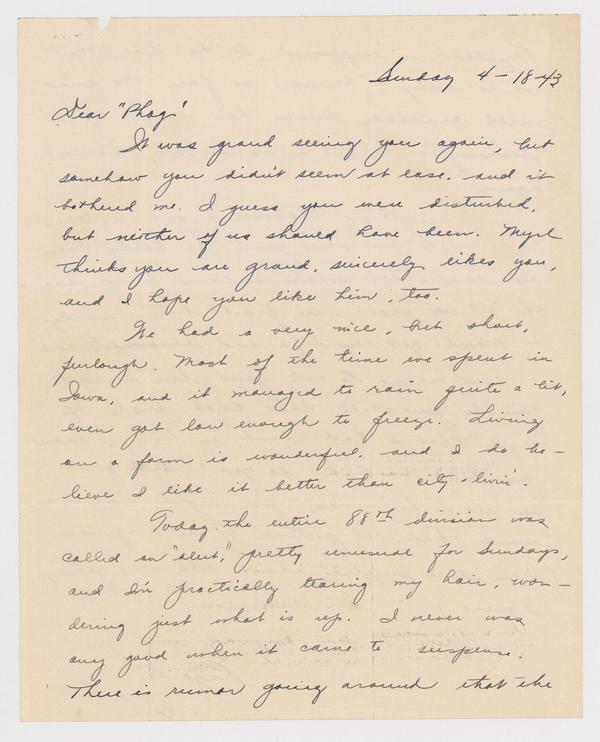 Sunday 4-18-43
Dear "Phog"
It was grand seeing you again, but
somehow you didn't seem at ease, and it
bothered me. I guess you were disturbed,
but neither of us should have been. Myrl
thinks you are grand, sincerely likes you,
and I hope you like him, too.
We had a very nice, but short,
furlough. Most of the time we spent in
Iowa, and it managed to rain quite a bit,
even got low enough to freeze. Living
on a farm is wonderful, and I do be-
lieve I like it better than city-livin'.
Today the entire 88th division was
called on "alert," pretty unusual for Sundays,
and I'm practically tearing my hair, won-
dering just what is up. I never was
any good when it came to suspense.
There is rumor going around that the